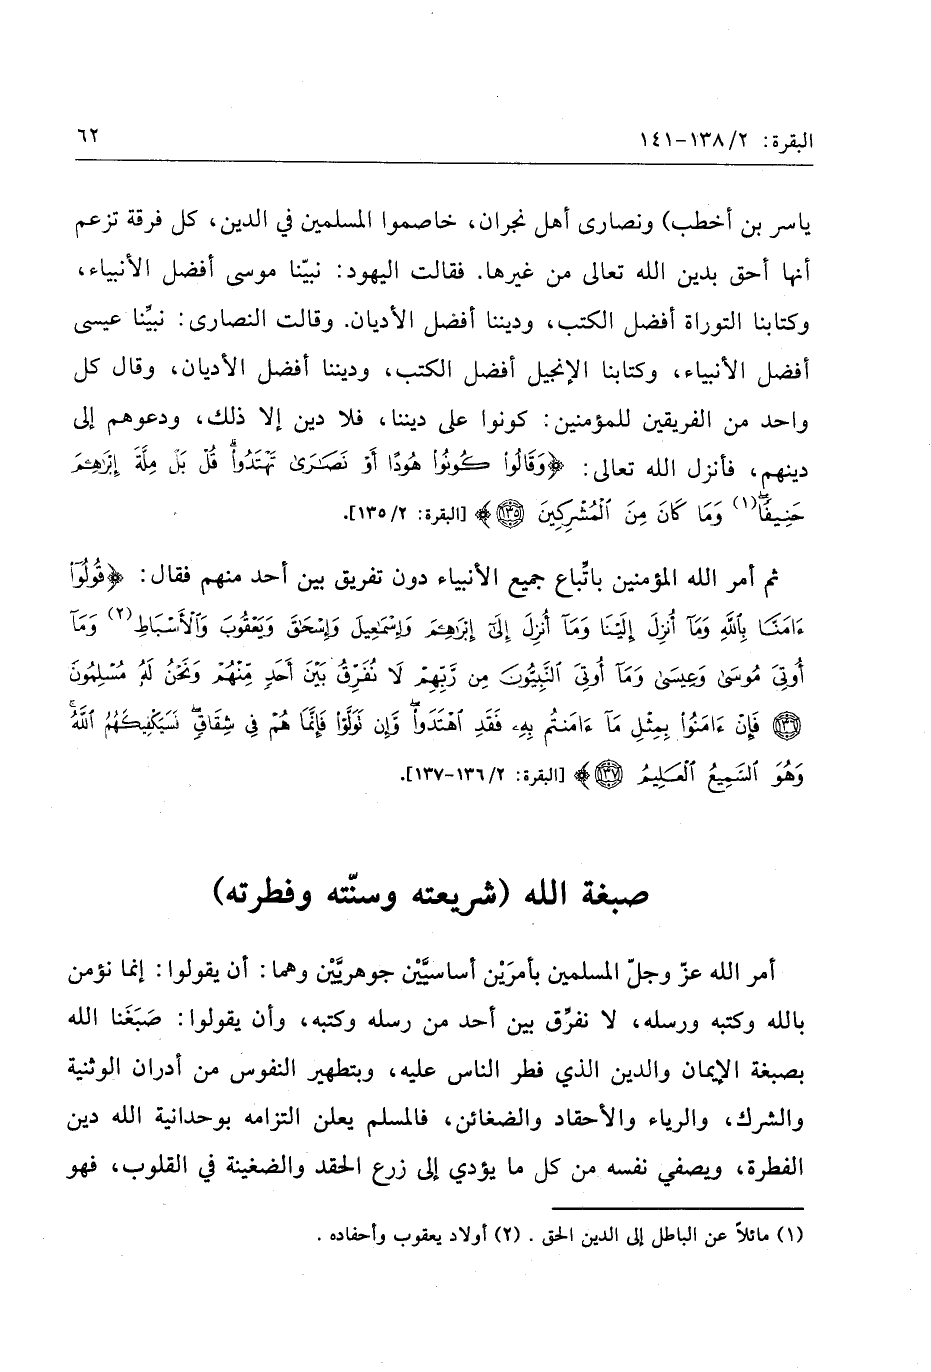 البقرة: ٢/ ١٣٨-١٤١
٦٢
ياسر بن أخطب) ونصارى أهل نجران، خاصموا المسلمين في الدين، كل فرقة تزعم
أنها أحق بدين الله تعالى من غيرها. فقالت اليهود: نبيّنا موسى أفضل الأنبياء،
وكتابنا التوراة أفضل الكتب، وديننا أفضل الأديان. وقالت النصارى: نبيِّنا عيسى
أفضل الأنبياء، وكتابنا الإنجيل أفضل الكتب، وديننا أفضل الأديان، وقال كل
واحد من الفريقين للمؤمنين: كونوا على ديننا، فلا دين إلا ذلك، ودعوهم إلى
دينهم، فأنزل الله تعالى: ﴿وَقَالُوا۟ كُونُوا۟ هُودًا أَوْ نَصَـٰرَىٰ تَهْتَدُوا۟ۗ قُلْ بَلْ مِلَّةَ إِبْرَٰهِـۧمَ
حَنِيفًاۖ(١) وَمَا كَانَ مِنَ ٱلْمُشْرِكِينَ ١٣٥﴾ [البقرة: ٢/ ١٣٥].
ثم أمر الله المؤمنين باتّباع جميع الأنبياء دون تفريق بين أحد منهم فقال: ﴿قُولُوٓا۟
ءَامَنَّا بِٱللَّهِ وَمَآ أُنزِلَ إِلَيْنَا وَمَآ أُنزِلَ إِلَىٰٓ إِبْرَٰهِـۧمَ وَإِسْمَـٰعِيلَ وَإِسْحَـٰقَ وَيَعْقُوبَ وَٱلْأَسْبَاطِ(٢) وَمَآ
أُوتِىَ مُوسَىٰ وَعِيسَىٰ وَمَآ أُوتِىَ ٱلنَّبِيُّونَ مِن رَّبِّهِمْ لَا نُفَرِّقُ بَيْنَ أَحَدٍ مِّنْهُمْ وَنَحْنُ لَهُۥ مُسْلِمُونَ
١٣٦ فَإِنْ ءَامَنُوا۟ بِمِثْلِ مَآ ءَامَنتُم بِهِۦ فَقَدِ ٱهْتَدَوا۟ۖ وَّإِن تَوَلَّوْا۟ فَإِنَّمَا هُمْ فِى شِقَاقٍۖ فَسَيَكْفِيكَهُمُ ٱللَّهُۚ
وَهُوَ ٱلسَّمِيعُ ٱلْعَلِيمُ ١٣٧﴾ [البقرة: ٢/ ١٣٦-١٣٧].
صبغة الله (شريعته وسنّته وفطرته)
أمر الله عزّ وجلّ المسلمين بأمرَيْن أساسيَّيْن جوهريَّيْن وهما: أن يقولوا: إنما نؤمن
بالله وكتبه ورسله، لا نفرِّق بين أحد من رسله وكتبه، وأن يقولوا: صَبَغَنا الله
بصبغة الإيمان والدين الذي فطر الناس عليه، وبتطهير النفوس من أدران الوثنية
والشرك، والرياء والأحقاد والضغائن، فالمسلم يعلن التزامه بوحدانية الله دين
الفطرة، ويصفي نفسه من كل ما يؤدي إلى زرع الحقد والضغينة في القلوب، فهو
(١) مائلاً عن الباطل إلى الدين الحق . (٢) أولاد يعقوب وأحفاده .